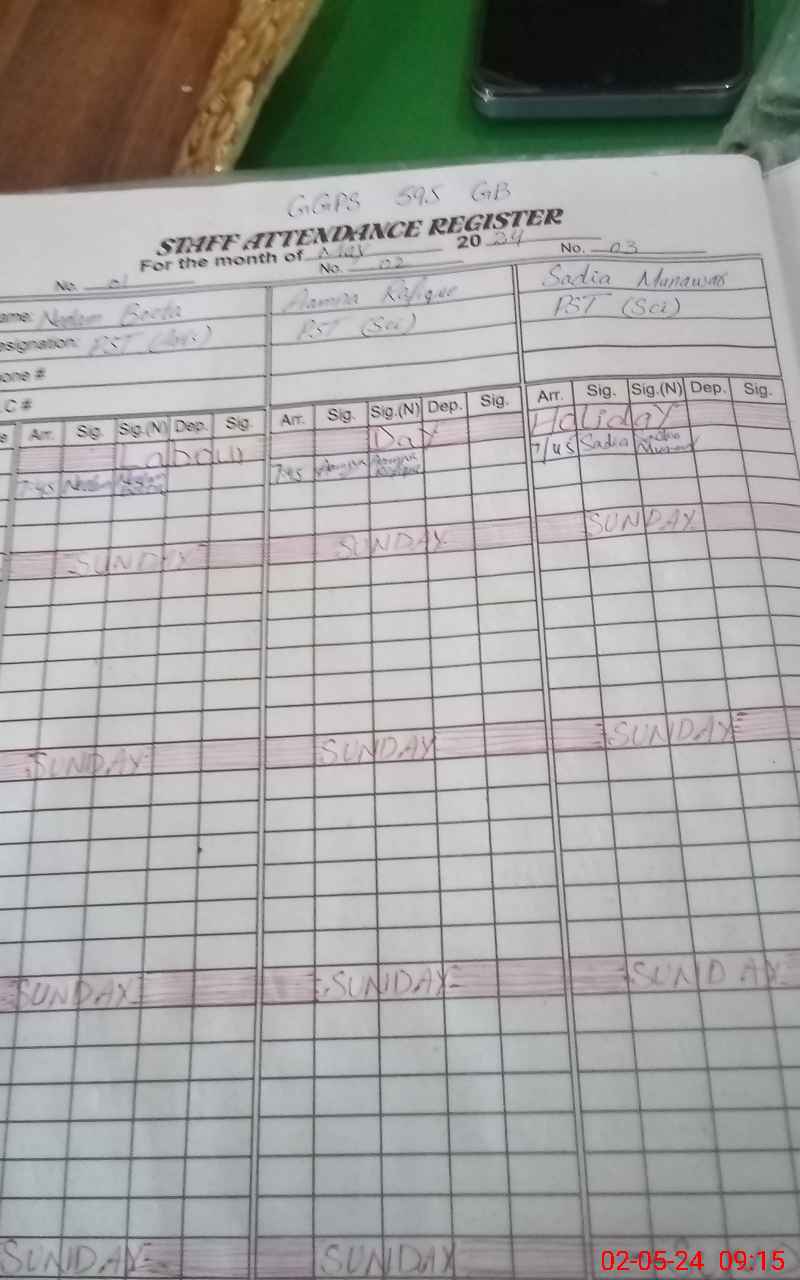 GGPS 595 GB
STAFF ATTENDANCE REGISTER
For the month of May 20 24
No. 01 No. 02 No. 03
ame: Beeta Aamna Rafique Sadia Munawar
esignation: PST PST (Sci) PST (Sci)
one #
C #
e Arr. Sig. Sig.(N) Dep. Sig. Arr. Sig. Sig.(N) Dep. Sig. Arr. Sig. Sig.(N) Dep. Sig.
Labour Day Holiday
7:45 7:45 Aamna Aamna Rafique 7/45 Sadia Sadia Munawar
SUNDAY SUNDAY SUNDAY
SUNDAY SUNDAY SUNDAY
SUNDAY SUNDAY SUNDAY
SUNDAY SUNDAY
02-05-24 09:15